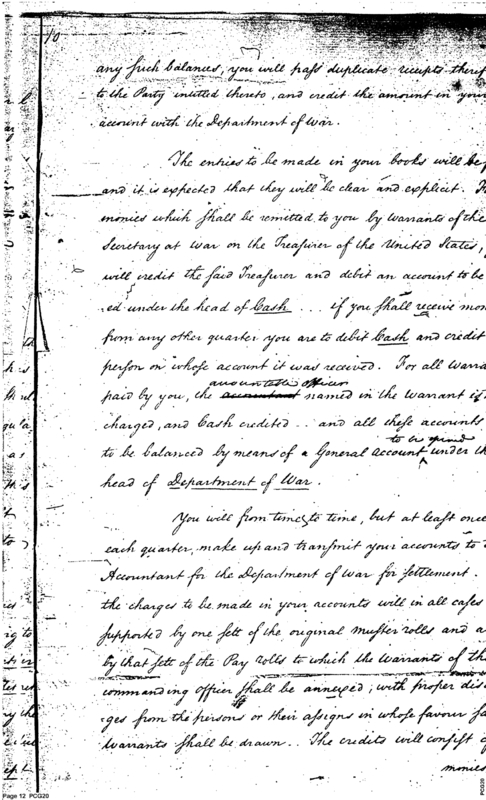 10
any such balances, you will pass duplicate receipts theref
to the Party intitled thereto, and credit the amount in your
account with the Department of War.
The entries to be made in your books will be
and it is expected that they will be clear and explicit.
monies which shall be remitted to you by warrants of the
Secretary at War on the Treasurer of the United States,
will credit the said Treasurer and debit an account to be
ed under the head of Cash ... if you shall receive mon
from any other quarter you are to debit Cash and credit
person on whose account it was received. For all warra
accountable officer
paid by you, the accountant named in the warrant is
charged, and Cash credited .. and all these accounts
to be opened
to be balanced by means of a General account under th
head of Department of War.
You will from time to time, but at least once
each quarter, make up and transmit your accounts to
Accountant for the Department of War for settlement.
the charges to be made in your accounts will in all cases
supported by one sett of the original muster rolls and a
by that sett of the Pay rolls to which the warrants of th
commanding officer shall be annexed; with proper dis
ges from the persons or their assigns in whose favour sa
warrants shall be drawn .. The credits will consist o
monies
Page 12 PCG20
PCG20